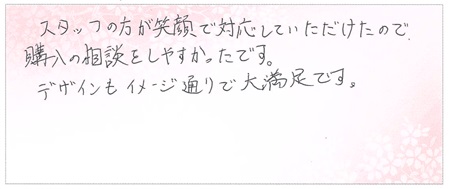 スタッフの方が笑顔で対応していただけたので、
購入の相談をしやすかったです。
デザインもイメージ通りで大満足です。